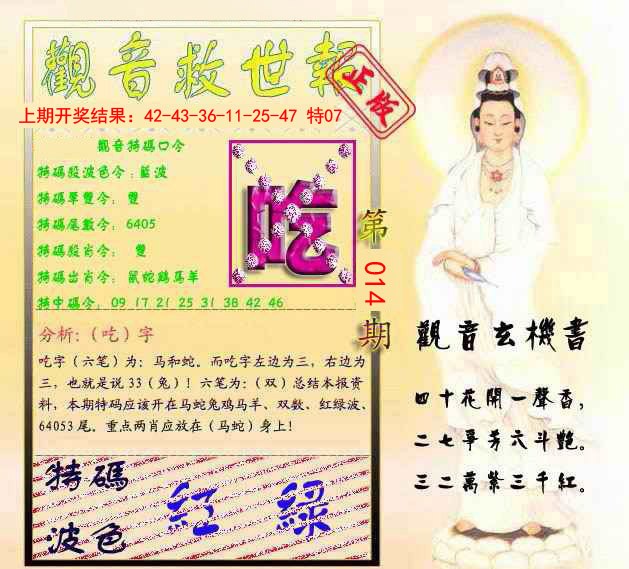 觀音救世報
正版
上期开奖结果: 42-43-36-11-25-47 特07
觀音特碼口令
特碼段波色令：藍波
特碼單雙令： 雙
特碼尾數令： 6405
特碼段肖令： 雙
特碼出肖令： 鼠蛇鷄馬羊
特中碼令： 09 17 21 25 31 38 42 46
吃
第
014
期
分析:（吃）字
吃字（六笔）为：马和蛇。而吃字左边为三，右边为
三，也就是说 33（兔）！六笔为:（双）总结本报资
料，本期特码应该开在马蛇兔鸡马羊、双数、红绿波、
64053 尾。重点两肖应放在（马蛇）身上！
特碼
波色
紅 綠
觀音玄機書
四十花開一聲香，
二七爭芳六斗艷。
三二萬紫三千紅。